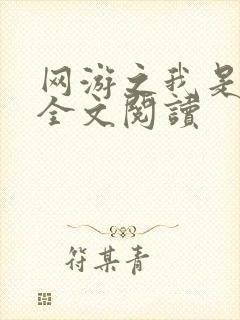 网游之我是
全文閱讀
符某青